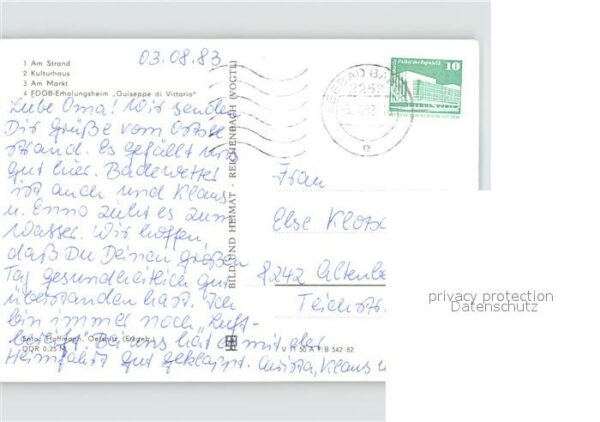 03.08.83
1 Am Strand
2 Kulturhaus
3 Am Markt
4 FDGB-Erholungsheim „Guiseppe di Vittorio"
Liebe Oma! Wir senden
Dir Grüße vom Ostsee
strand. Es gefällt uns
gut hier. Badewetter
ist auch und Klaus
u. Enno zieht es zum
Wasser. Wir hoffen,
daß Du Deinen großen
Tag gesundheitlich gut
überstanden hast. Ich
bin immer noch „Luft-
Bei uns hat es mit der
Heimfahrt gut geklappt. Christa, Klaus u
Foto: Hoffmann, Oelsnitz (Erzgeb.)
DDR 0,25 M
BILD UND HEIMAT · REICHENBACH (VOGTL)
V 11 50 A 1 B 542/82
SEEBAD BAN
Palast der Republik
10
Frau
Else Klots
8242 Altenbe
Teichstr.
privacy protection
Datenschutz